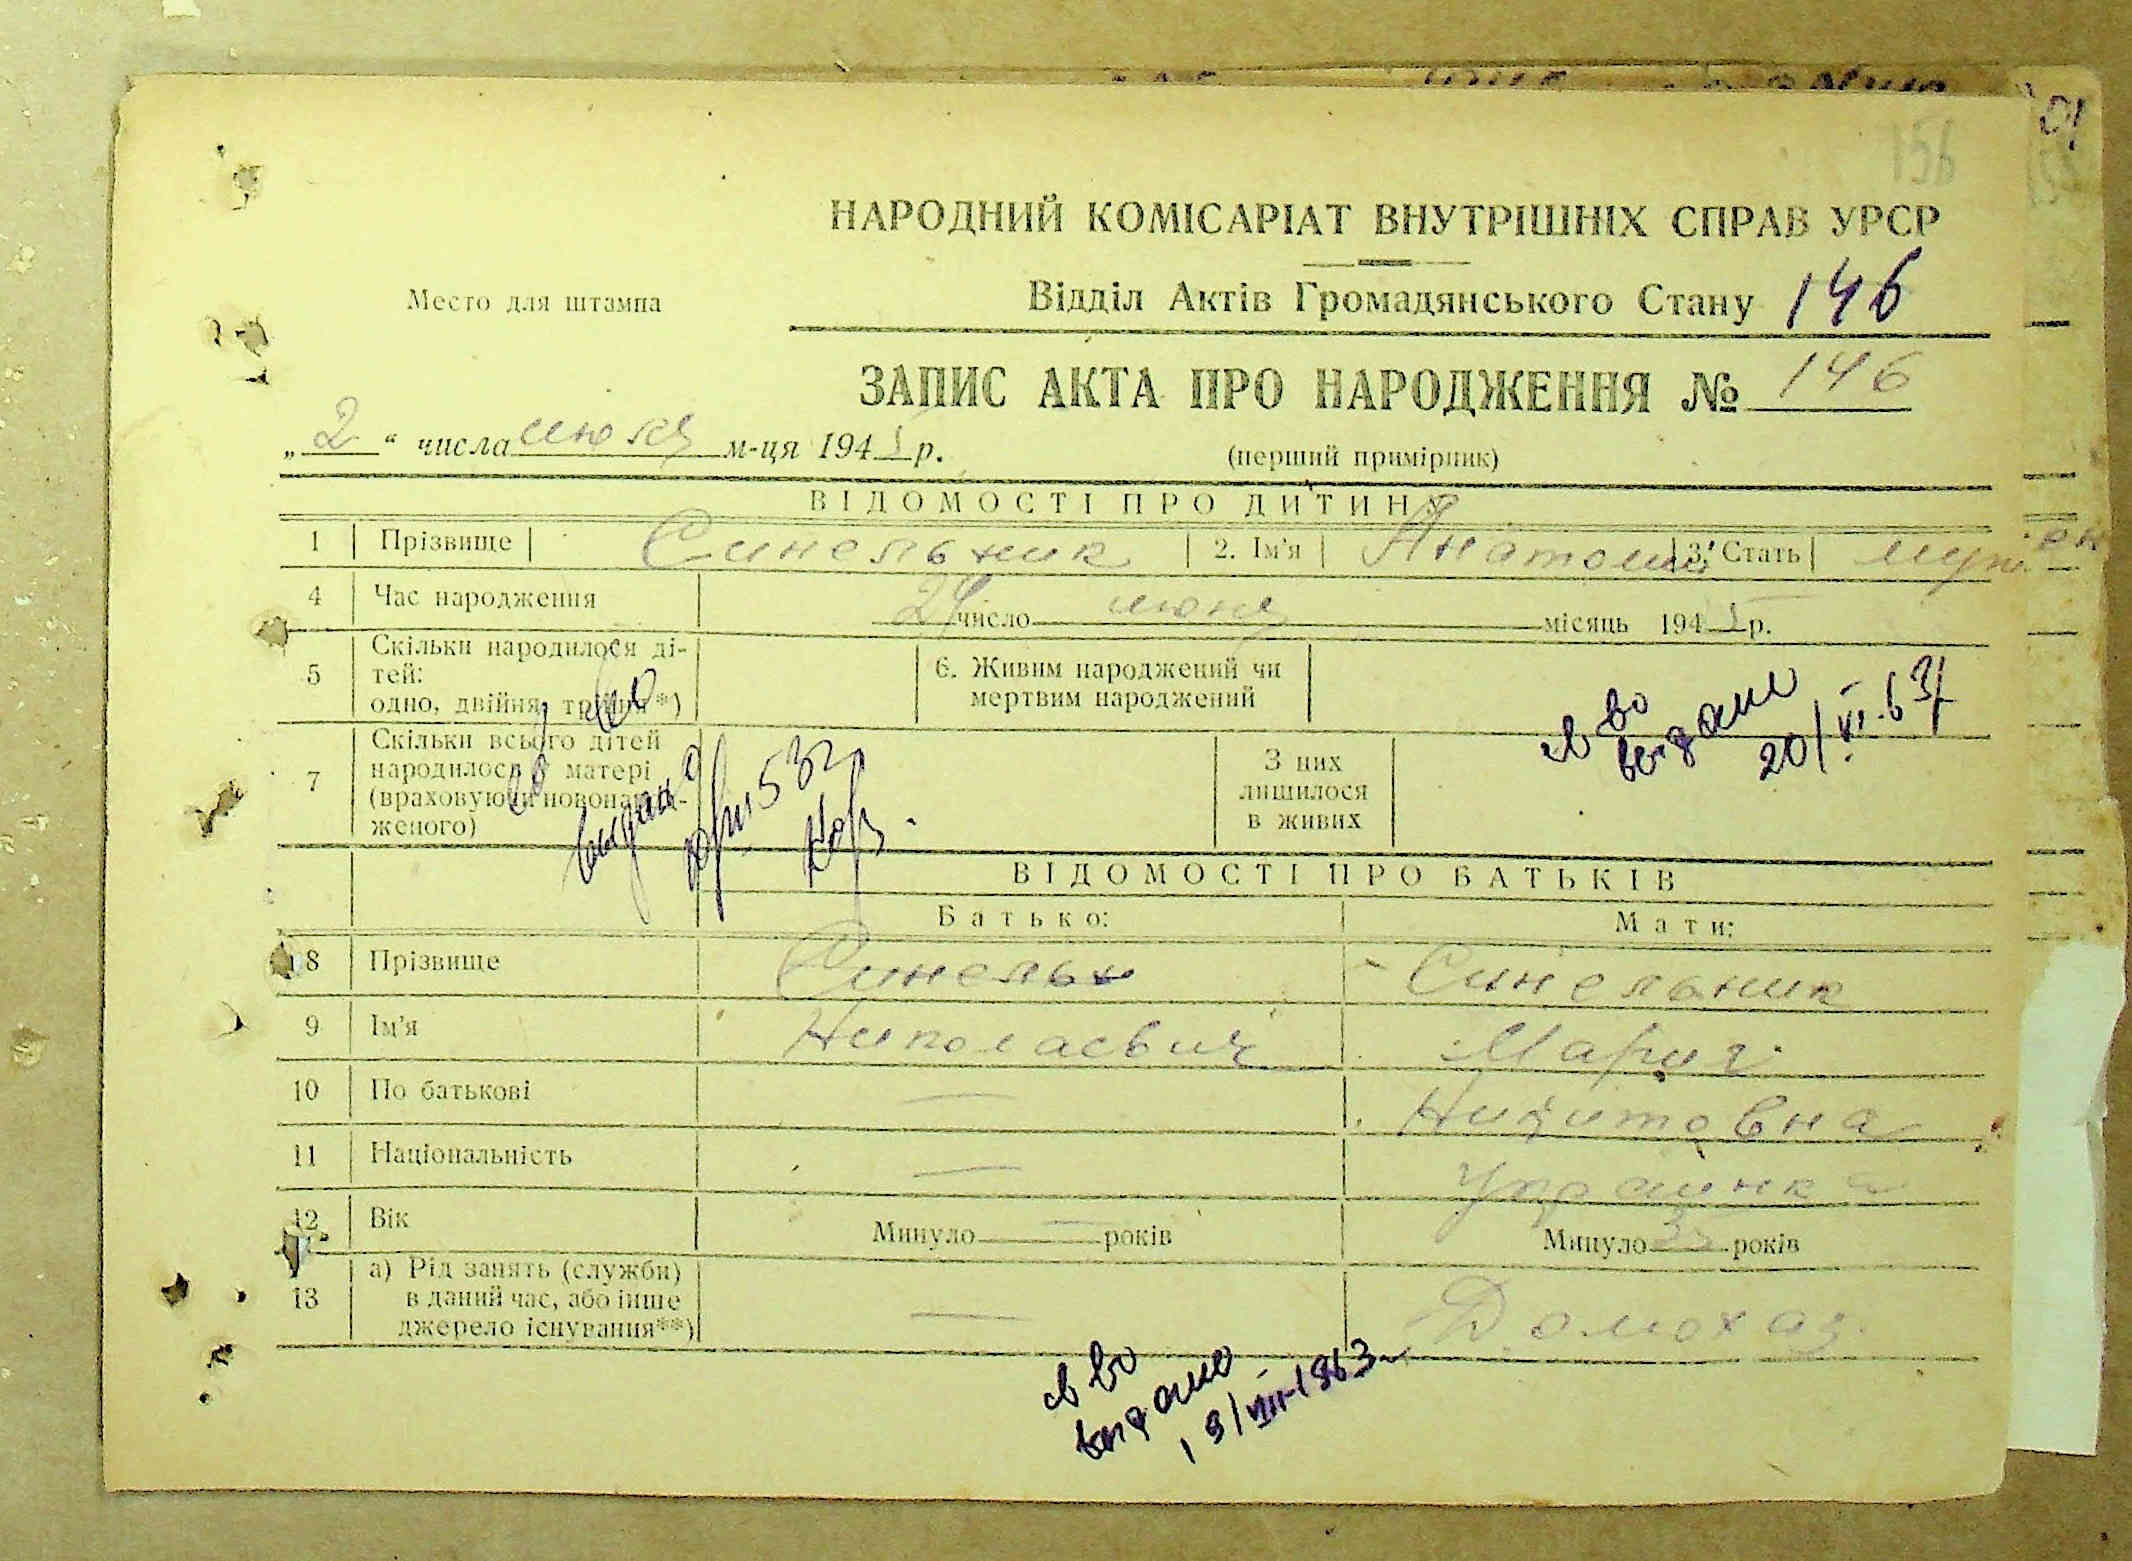 156
НАРОДНИЙ КОМІСАРІАТ ВНУТРІШНІХ СПРАВ УРСР
Место для штампа
Відділ Актів Громадянського Стану 146
ЗАПИС АКТА ПРО НАРОДЖЕННЯ № 146
„2“ числа июля м-ця 1945 р.
(перший примірник)
ВІДОМОСТІ ПРО ДИТИНУ
1 Прізвище Синельник 2. Ім'я Анатолий 3. Стать муж
4 Час народження 24 число июня місяць 1945 р.
5 Скільки народилося ді-
тей:
одно, двійня, трійня*)
6. Живим народжений чи
мертвим народжений
св во
выдано
20/VI-63
7 Скільки всього дітей
народилося у матері
(враховуючи новонарод-
женого)
З них
лишилося
в живих
выдано
53г
ВІДОМОСТІ ПРО БАТЬКІВ
Батько: Мати:
8 Прізвище Синельн Синельник
9 Ім'я Николаевич Мария
10 По батькові — Никитовна
11 Національність — Украинка
12 Вік Минуло — років Минуло 35 років
13 а) Рід занять (служби)
в даний час, або інше
джерело існування**) — Домохоз.
св во
выдано
19/VIII-1963г